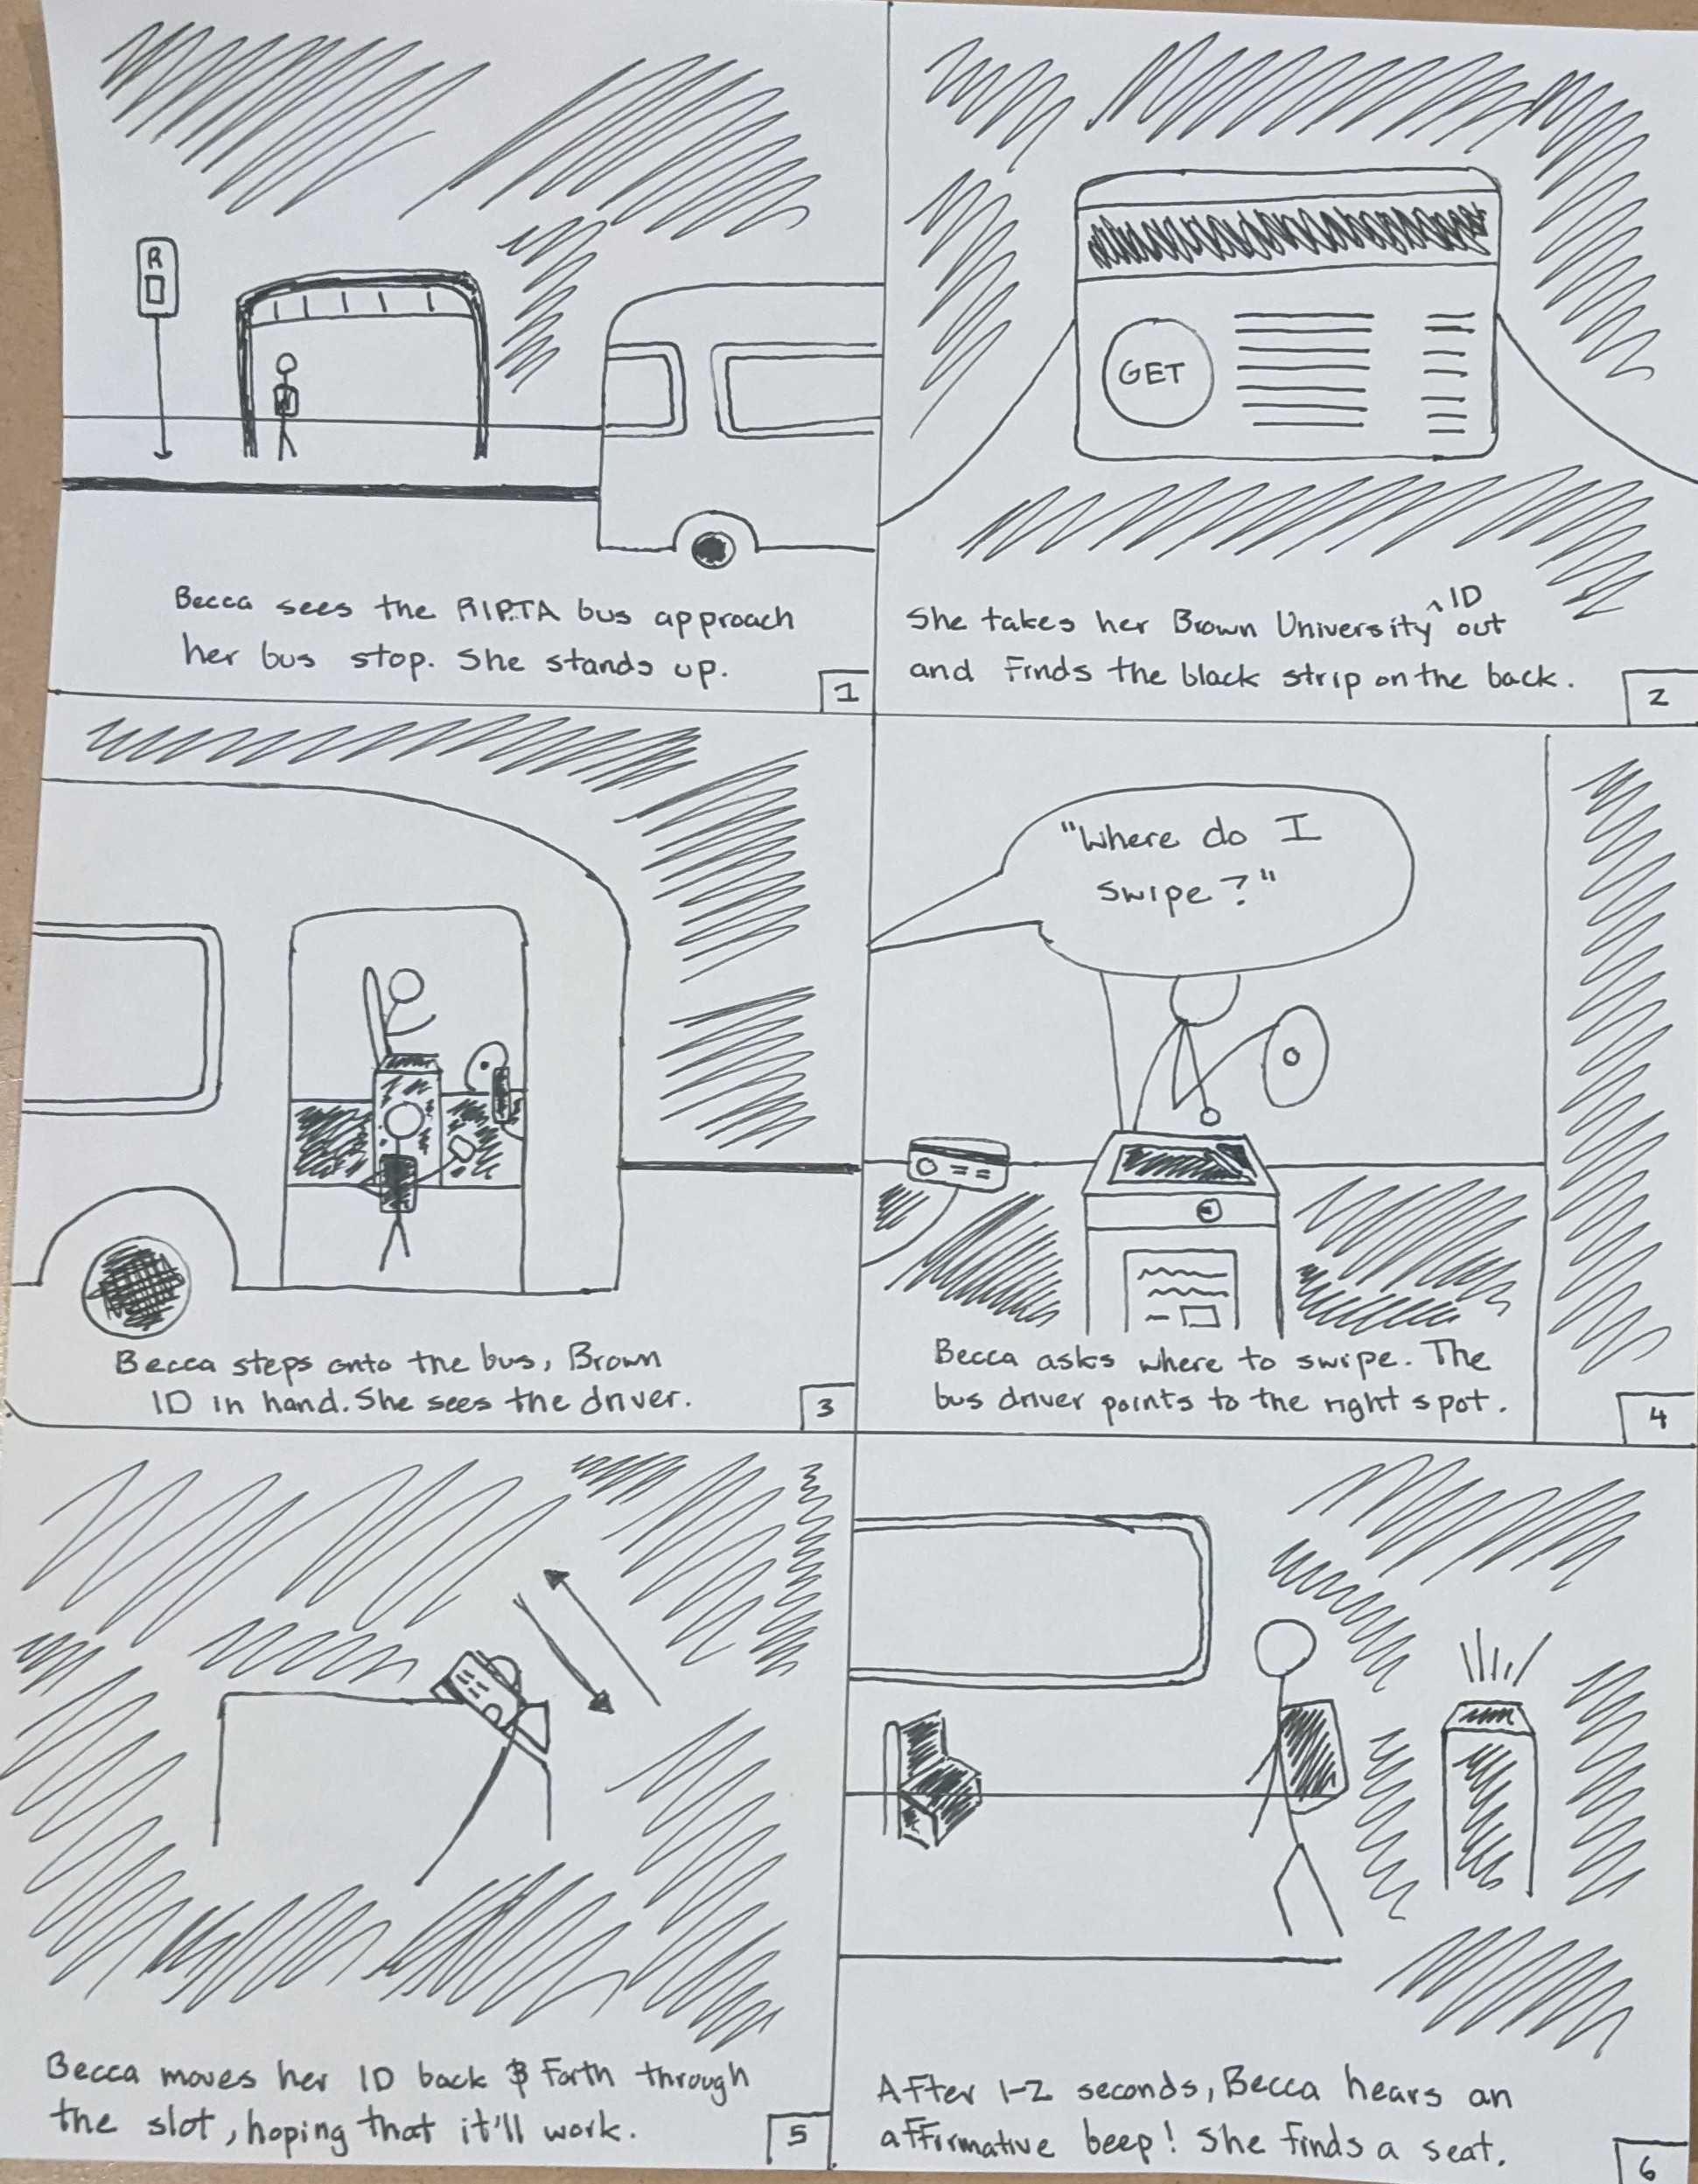 R
Becca sees the RIPTA bus approach
her bus stop. She stands up.
1
GET
She takes her Brown University ^ ID out
and finds the black strip on the back.
2
Becca steps onto the bus, Brown
ID in hand. She sees the driver.
3
"Where do I
swipe?"
Becca asks where to swipe. The
bus driver points to the right spot.
4
Becca moves her ID back & forth through
the slot, hoping that it'll work.
5
After 1-2 seconds, Becca hears an
affirmative beep! She finds a seat.
6